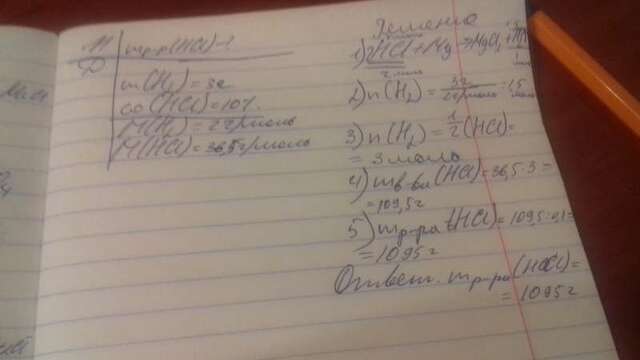 Н | mр-ра(HCl)-?
Д
m(H₂) = 3г
ω(HCl) = 10%
M(H₂) = 2г/моль
M(HCl) = 36,5г/моль
Решение
1) 2HCl + Mg → MgCl₂ + H₂
2 моль 1 моль
2) n(H₂) = 3г / 2г/моль = 1,5 моль
3) n(H₂) = 1/2 (HCl) =
= 3 моль
4) mв-ва (HCl) = 36,5 · 3 =
= 109,5 г
5) mр-ра (HCl) = 109,5 : 0,1 =
= 1095 г
Ответ. mр-ра (HCl) =
= 1095 г